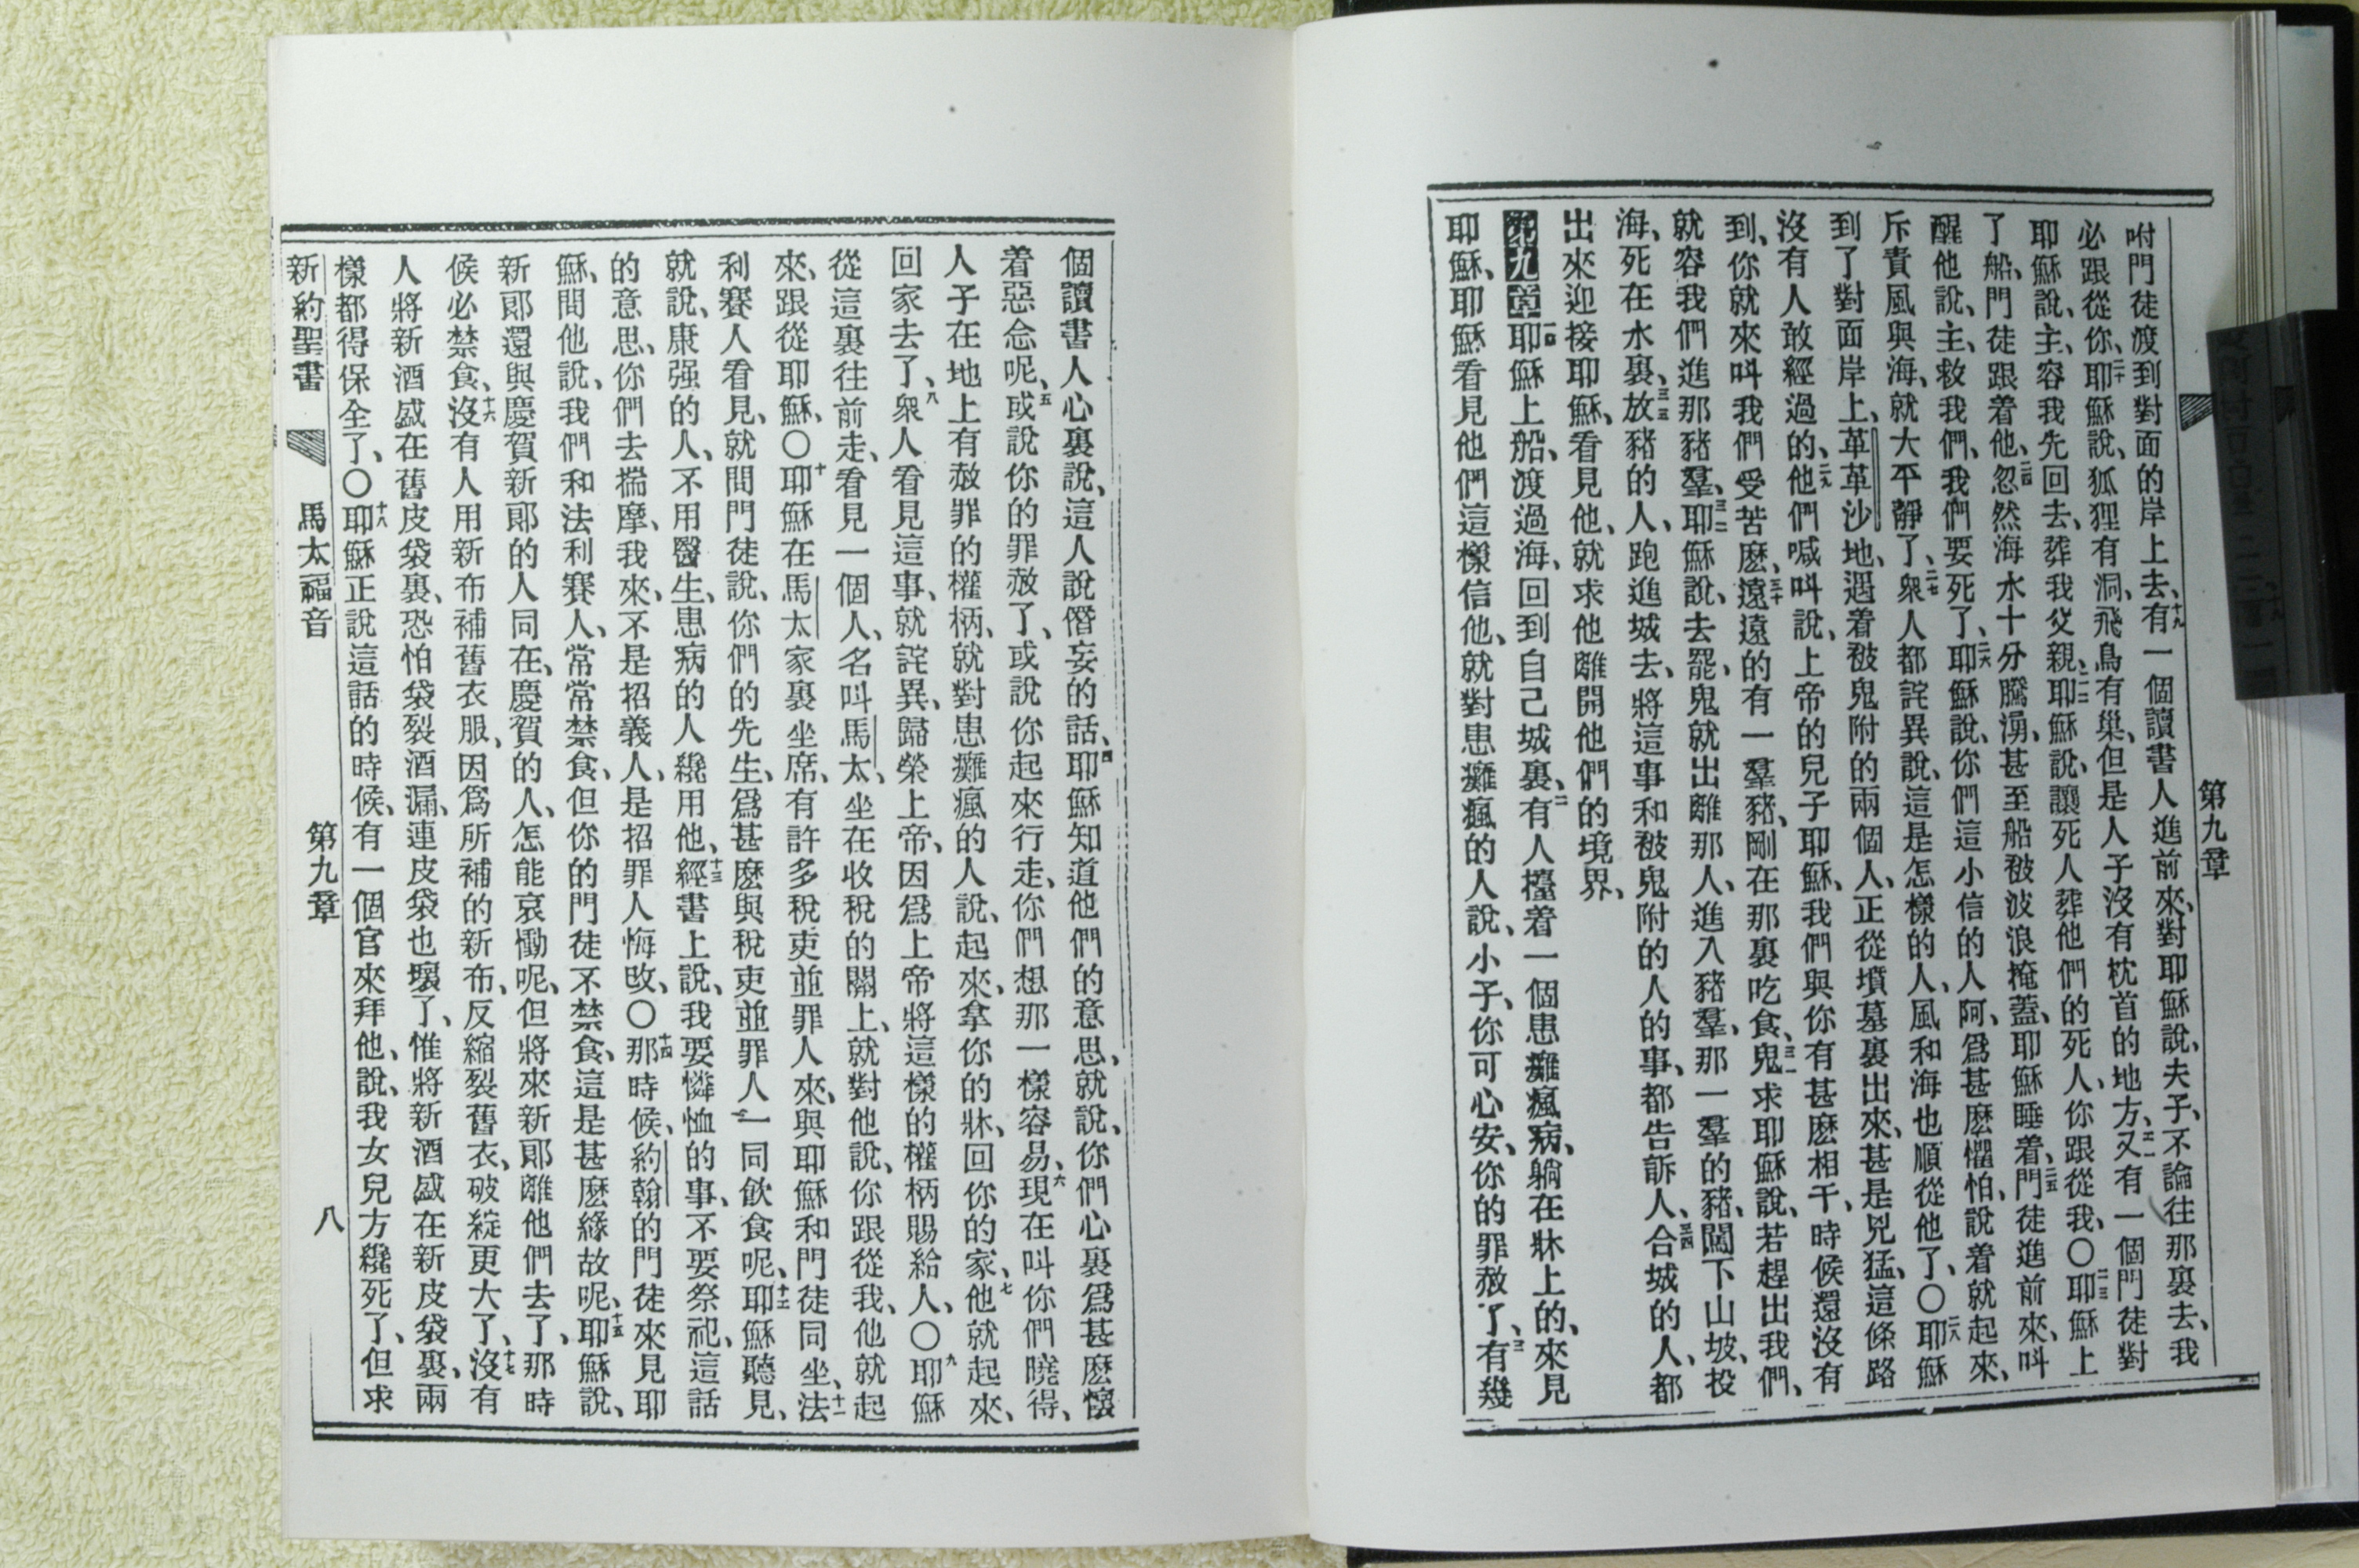 第九章
咐門徒渡到對面的岸上去、十九有一個讀書人進前來、對耶穌說、夫子、不論往那裏去、我
必跟從你、二十耶穌說、狐狸有洞、飛鳥有巢、但是人子沒有枕首的地方、二一又有一個門徒對
耶穌說、主、容我先回去、葬我父親、二二耶穌說、讓死人葬他們的死人、你跟從我、〇二三耶穌上
了船、門徒跟着他、二四忽然海水十分騰湧、甚至船被波浪掩蓋、耶穌睡着、二五門徒進前來、叫
醒他說、主、救我們、我們要死了、二六耶穌說、你們這小信的人阿、爲甚麽懼怕、說着就起來、
斥責風與海、就大平靜了、二七衆人都詫異說、這是怎樣的人、風和海也順從他了、〇二八耶穌
到了對面岸上、革革沙地、遇着被鬼附的兩個人、正從墳墓裏出來、甚是兇猛、這條路
沒有人敢經過的、二九他們喊叫說、上帝的兒子耶穌、我們與你有甚麽相干、時候還沒有
到、你就來叫我們受苦麽、三十遠遠的有一羣豬、剛在那裏吃食、三一鬼求耶穌說、若趕出我們、
就容我們進那豬羣、三二耶穌說、去罷、鬼就出離那人、進入豬羣、那一羣的豬、闖下山坡、投
海、死在水裏、三三放豬的人、跑進城去、將這事和被鬼附的人的事、都告訴人、三四合城的人、都
出來迎接耶穌、看見他、就求他離開他們的境界、
第九章 一耶穌上船、渡過海、回到自己城裏、二有人擡着一個患癱瘋病、躺在牀上的、來見
耶穌、耶穌看見他們這樣信他、就對患癱瘋的人說、小子、你可心安、你的罪赦了、三有幾
個讀書人心裏說、這人說僭妄的話、四耶穌知道他們的意思、就說、你們心裏爲甚麽懷
着惡念呢、五或說你的罪赦了、或說你起來行走、你們想那一樣容易、六現在叫你們曉得、
人子在地上有赦罪的權柄、就對患癱瘋的人說、起來、拿你的牀、回你的家、七他就起來、
回家去了、八衆人看見這事、就詫異、歸榮上帝、因爲上帝將這樣的權柄賜給人、〇九耶穌
從這裏往前走、看見一個人、名叫馬太、坐在收稅的關上、就對他說、你跟從我、他就起
來、跟從耶穌、〇十耶穌在馬太家裏坐席、有許多稅吏並罪人來、與耶穌和門徒同坐、十一法
利賽人看見、就問門徒說、你們的先生、爲甚麽與稅吏並罪人一同飲食呢、十二耶穌聽見、
就說、康强的人、不用醫生、患病的人纔用他、十三經書上說、我要憐恤的事、不要祭祀、這話
的意思、你們去揣摩、我來、不是招義人、是招罪人悔改、〇十四那時候、約翰的門徒來見耶
穌、問他說、我們和法利賽人、常常禁食、但你的門徒不禁食、這是甚麽緣故呢、十五耶穌說、
新郞還與慶賀新郞的人同在、慶賀的人、怎能哀慟呢、但將來新郞離他們去了、那時
候必禁食、十六沒有人用新布補舊衣服、因爲所補的新布、反縮裂舊衣、破綻更大了、十七沒有
人將新酒盛在舊皮袋裏、恐怕袋裂酒漏、連皮袋也壞了、惟將新酒盛在新皮袋裏、兩
樣都得保全了、〇十八耶穌正說這話的時候、有一個官來拜他、說、我女兒方纔死了、但求
新約聖書 馬太福音 第九章 八